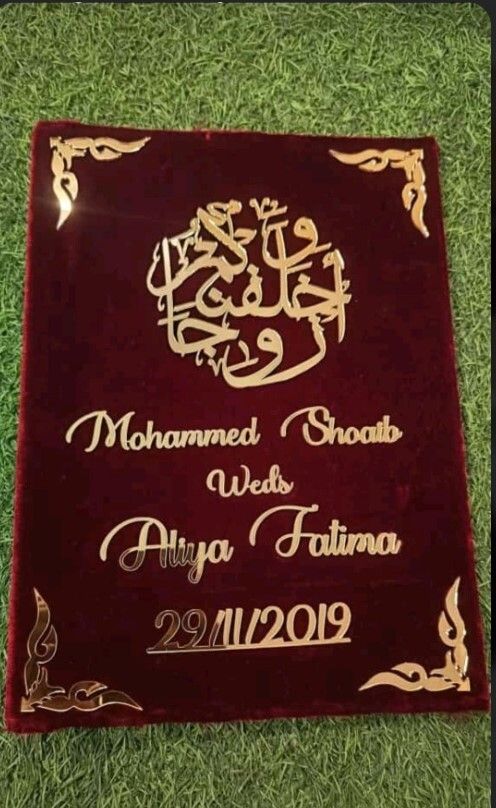 وخلقنكم أزوجا
Mohammed Shoaib
Weds
Aliya Fatima
29/11/2019